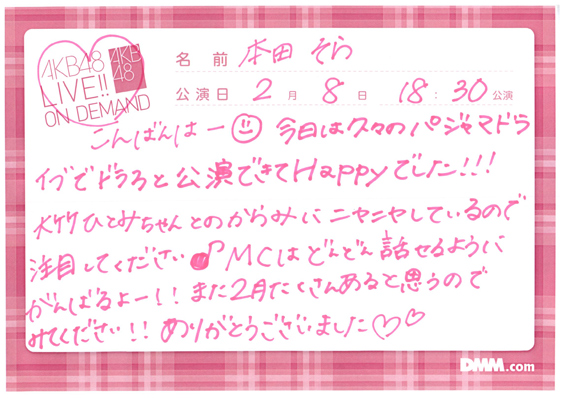 AKB48
LIVE!!
ON DEMAND
AKB
48
名前 本田 そら
公演日 2月 8日 18:30 公演
こんばんはー 今日は久々のパジャマドラ
イブでドラ3と公演できてHappyでした!!!
ひとみちゃんとのからみにニヤニヤしているので
注目してください MCはどんどん話せるように
がんばるよー!! また2月たくさんあると思うので
みてください!! ありがとうございました♡♡
DMM.com